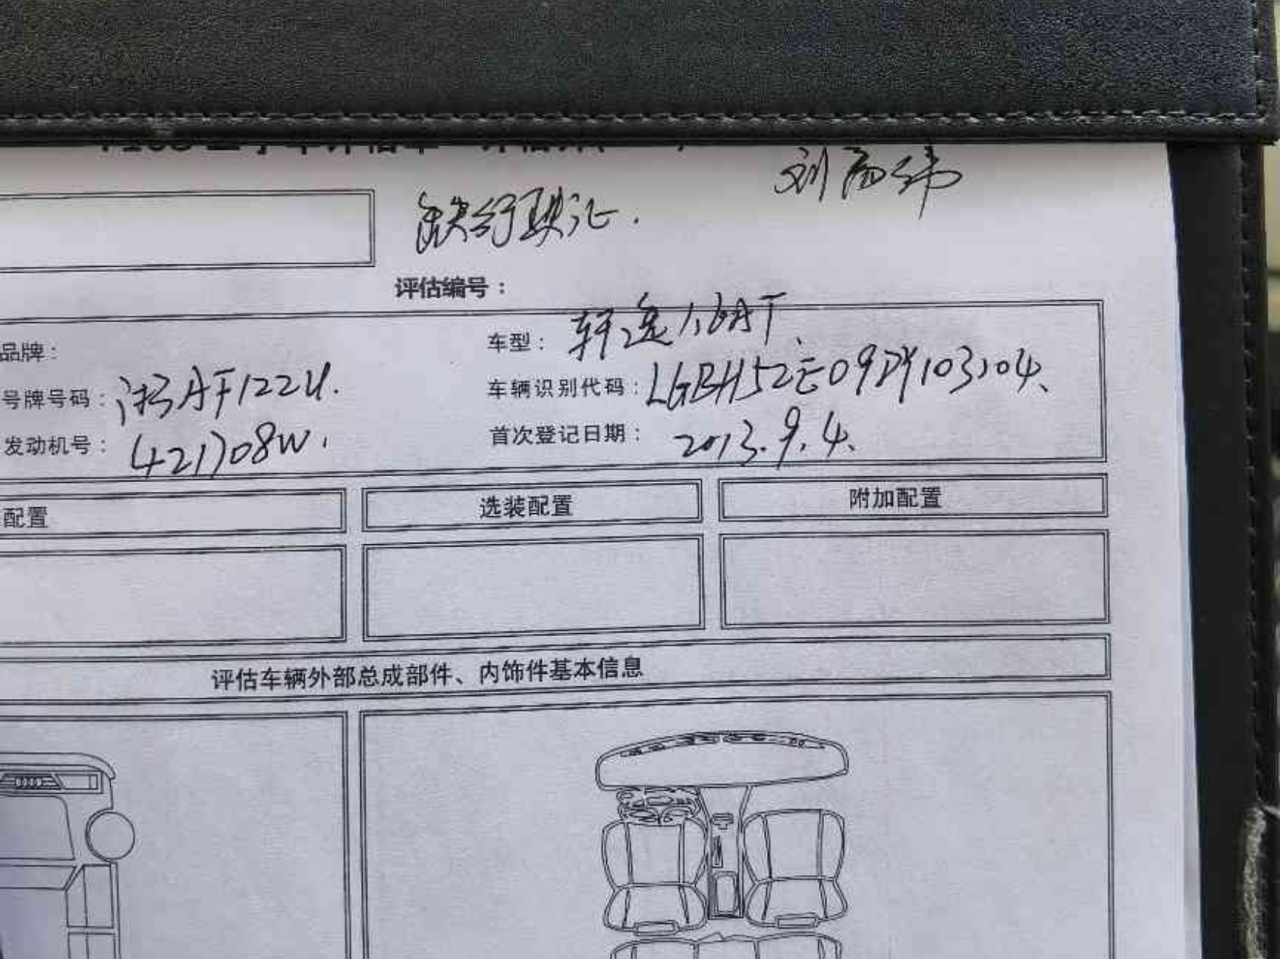 刘
缺行驶证.
评估编号：
品牌：
车型：轩逸1.6AT
号牌号码：
车辆识别代码：LGBH52E09DY103104
发动机号：
首次登记日期：2013.9.4
配置
选装配置
附加配置
评估车辆外部总成部件、内饰件基本信息